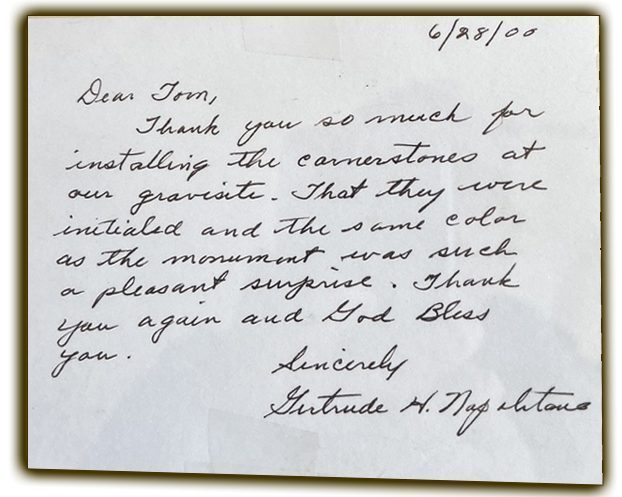 6/28/00
Dear Tom,
Thank you so much for
installing the cornerstones at
our gravisite. That they were
initialed and the same color
as the monument was such
a pleasant surprise. Thank
you again and God Bless
you.
Sincerely
Gertrude H. Napolitano